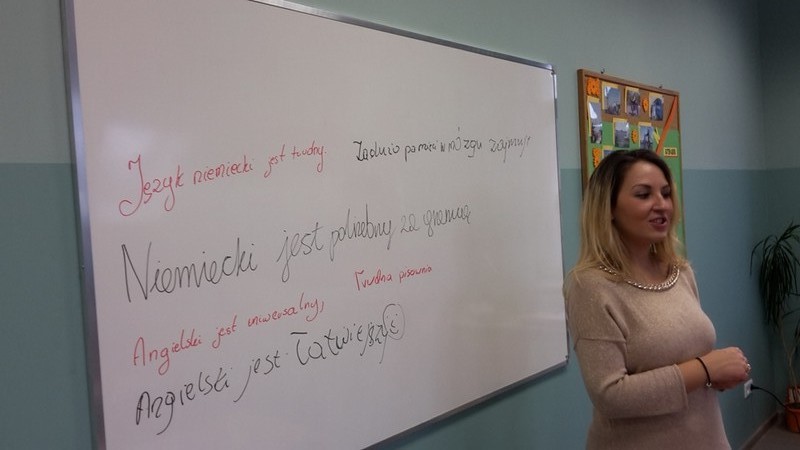 Język niemiecki jest trudny. Żadnio pamięci w mózgu zajmuje
Niemiecki jest potrzebny za granicą
Angielski jest uniwersalny, Trudna pisownia
Angielski jest łatwiejszy